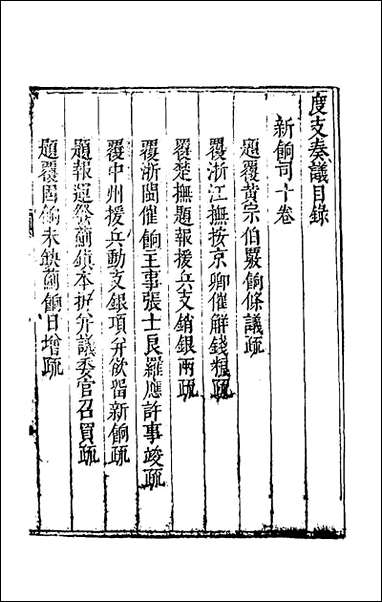 度支奏議目錄
新餉司十卷
題覆黃宗伯嚴餉條議疏
覆浙江撫按京卿催解錢粮疏
覆楚撫題報援兵支銷銀兩疏
覆浙閩催餉主事張士良羅應許事竣疏
覆中州援兵動支銀項并欲留新餉疏
題報運發薊鎮本折并議委官召買疏
題覆固餉未缺薊餉日增疏